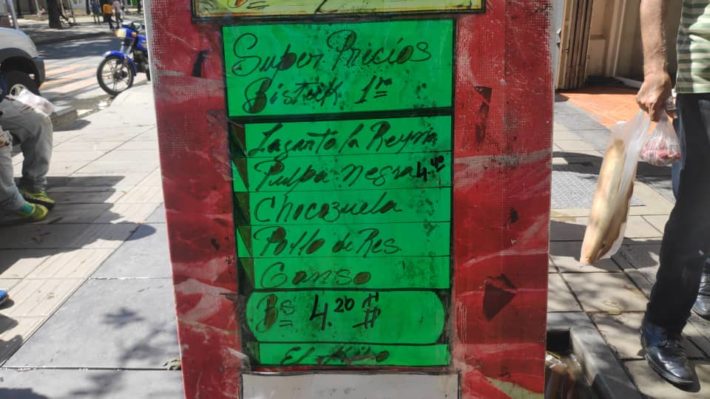 Super Precios
Bisteck 1ra
Lagarto la Reyna
Pulpa negra
Chocozuela
Pollo de Res
Ganso
Bs 4.20
El Kilo